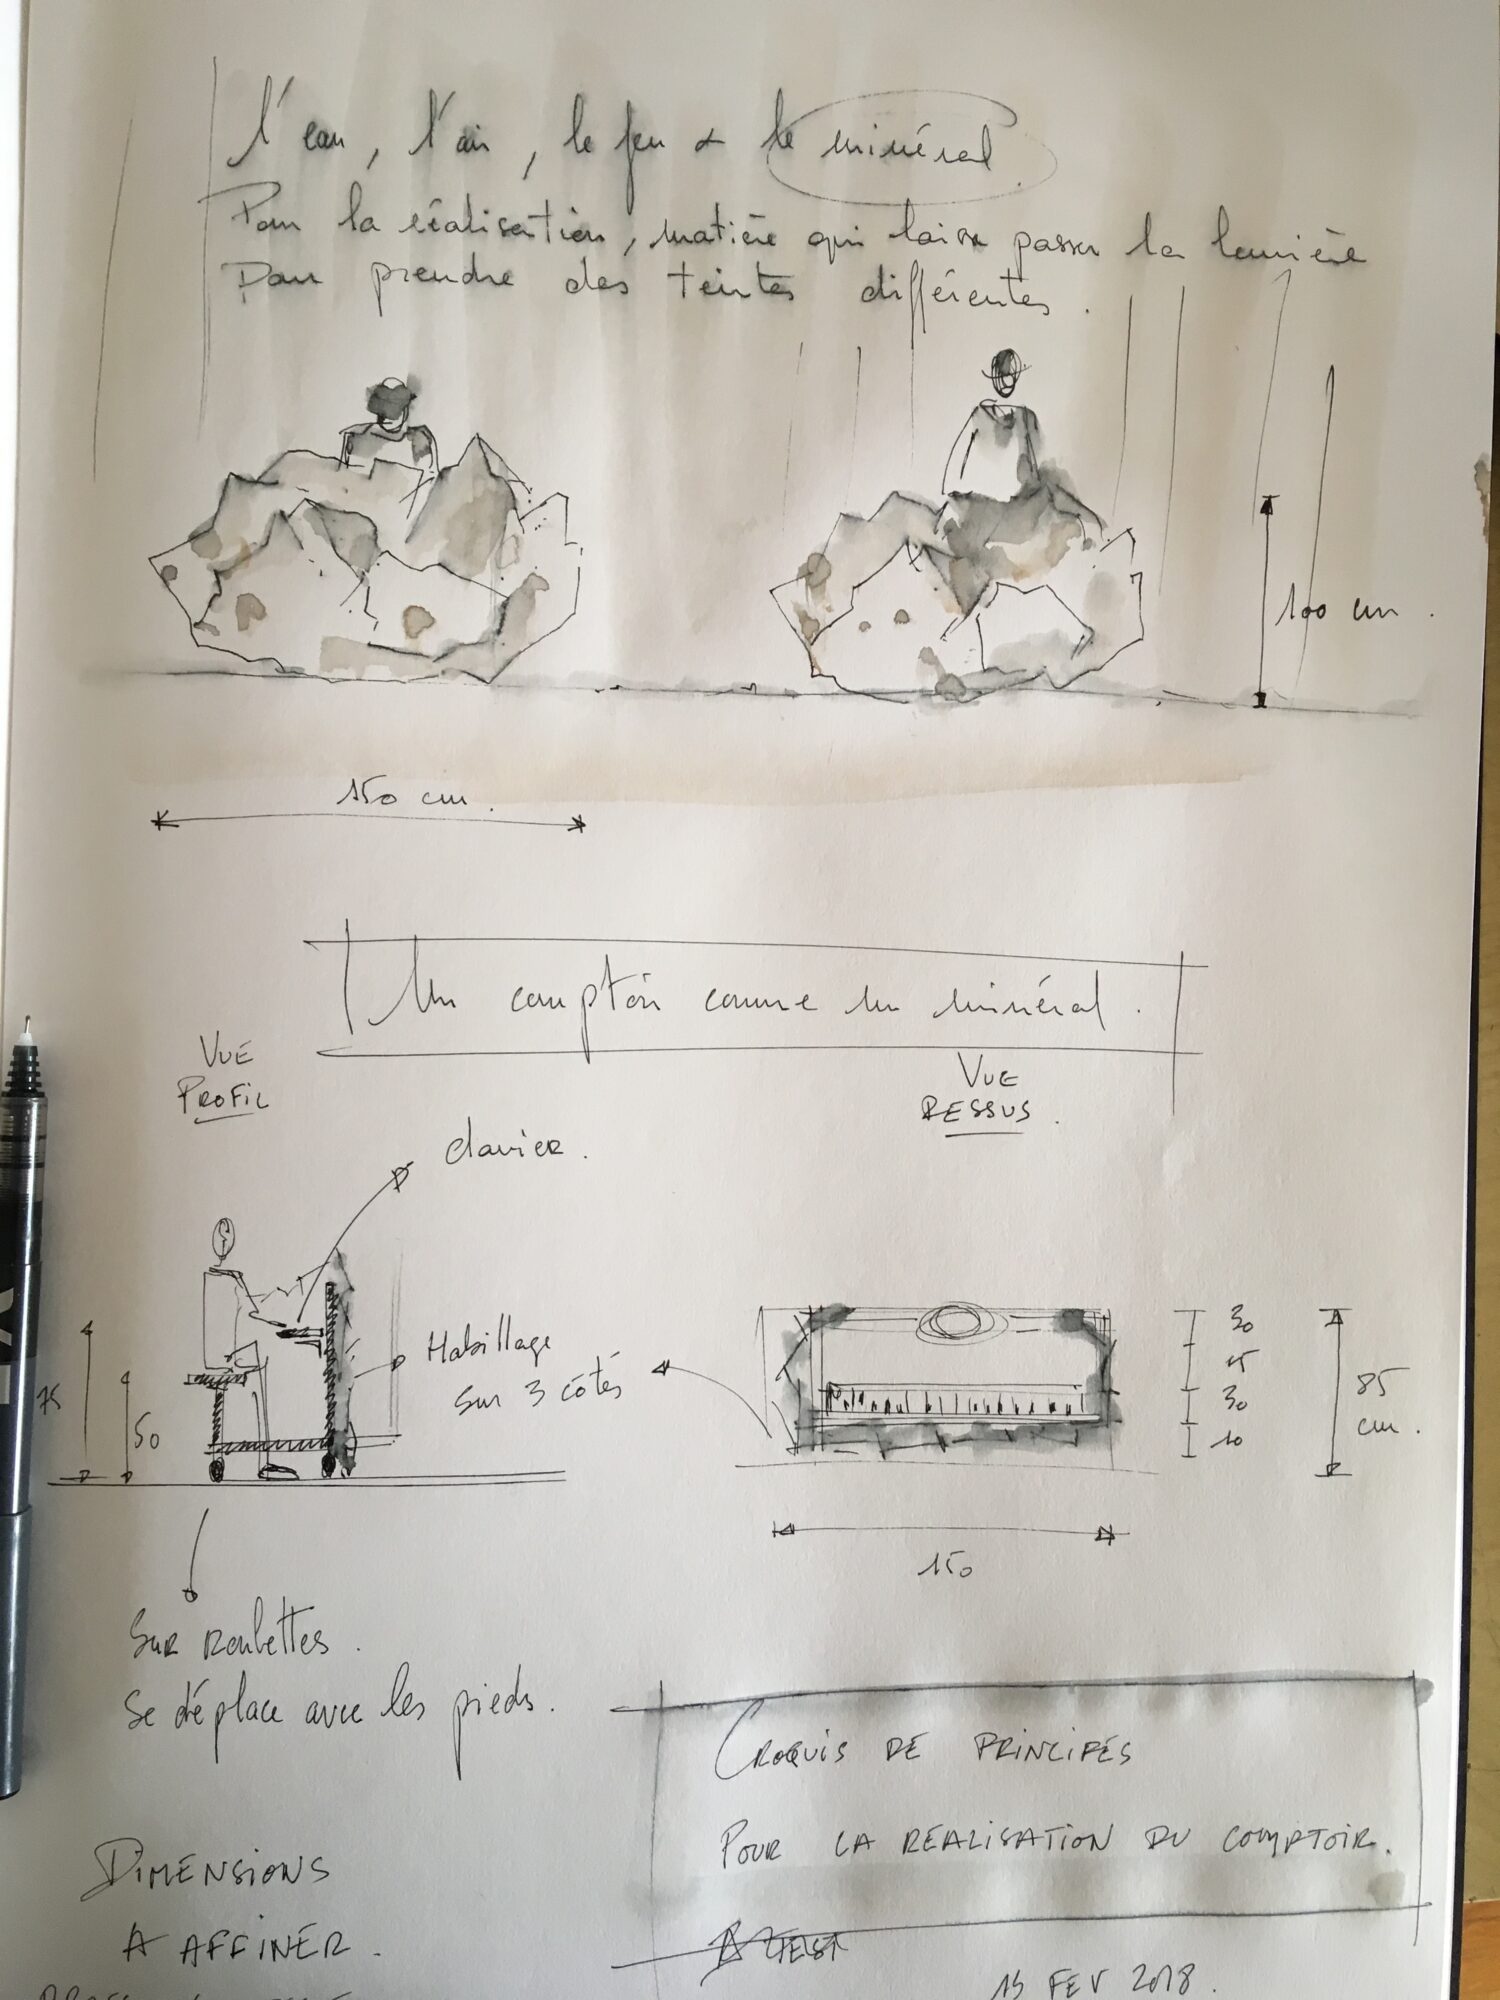 l'eau, l'air, le feu & le minéral
Pour la réalisation, matière qui laisse passer la lumière
Pour prendre des teintes différentes.
100 cm.
150 cm.
Un comptoir comme un minéral.
VUE
PROFIL
VUE
DESSUS.
clavier.
Habillage
sur 3 côtés
75
50
30
15
30
10
85
cm.
150
Sur roulettes.
Se déplace avec les pieds.
CROQUIS DE PRINCIPES
POUR LA RÉALISATION DU COMPTOIR.
DIMENSIONS
A AFFINER.
15 FEV 2018.